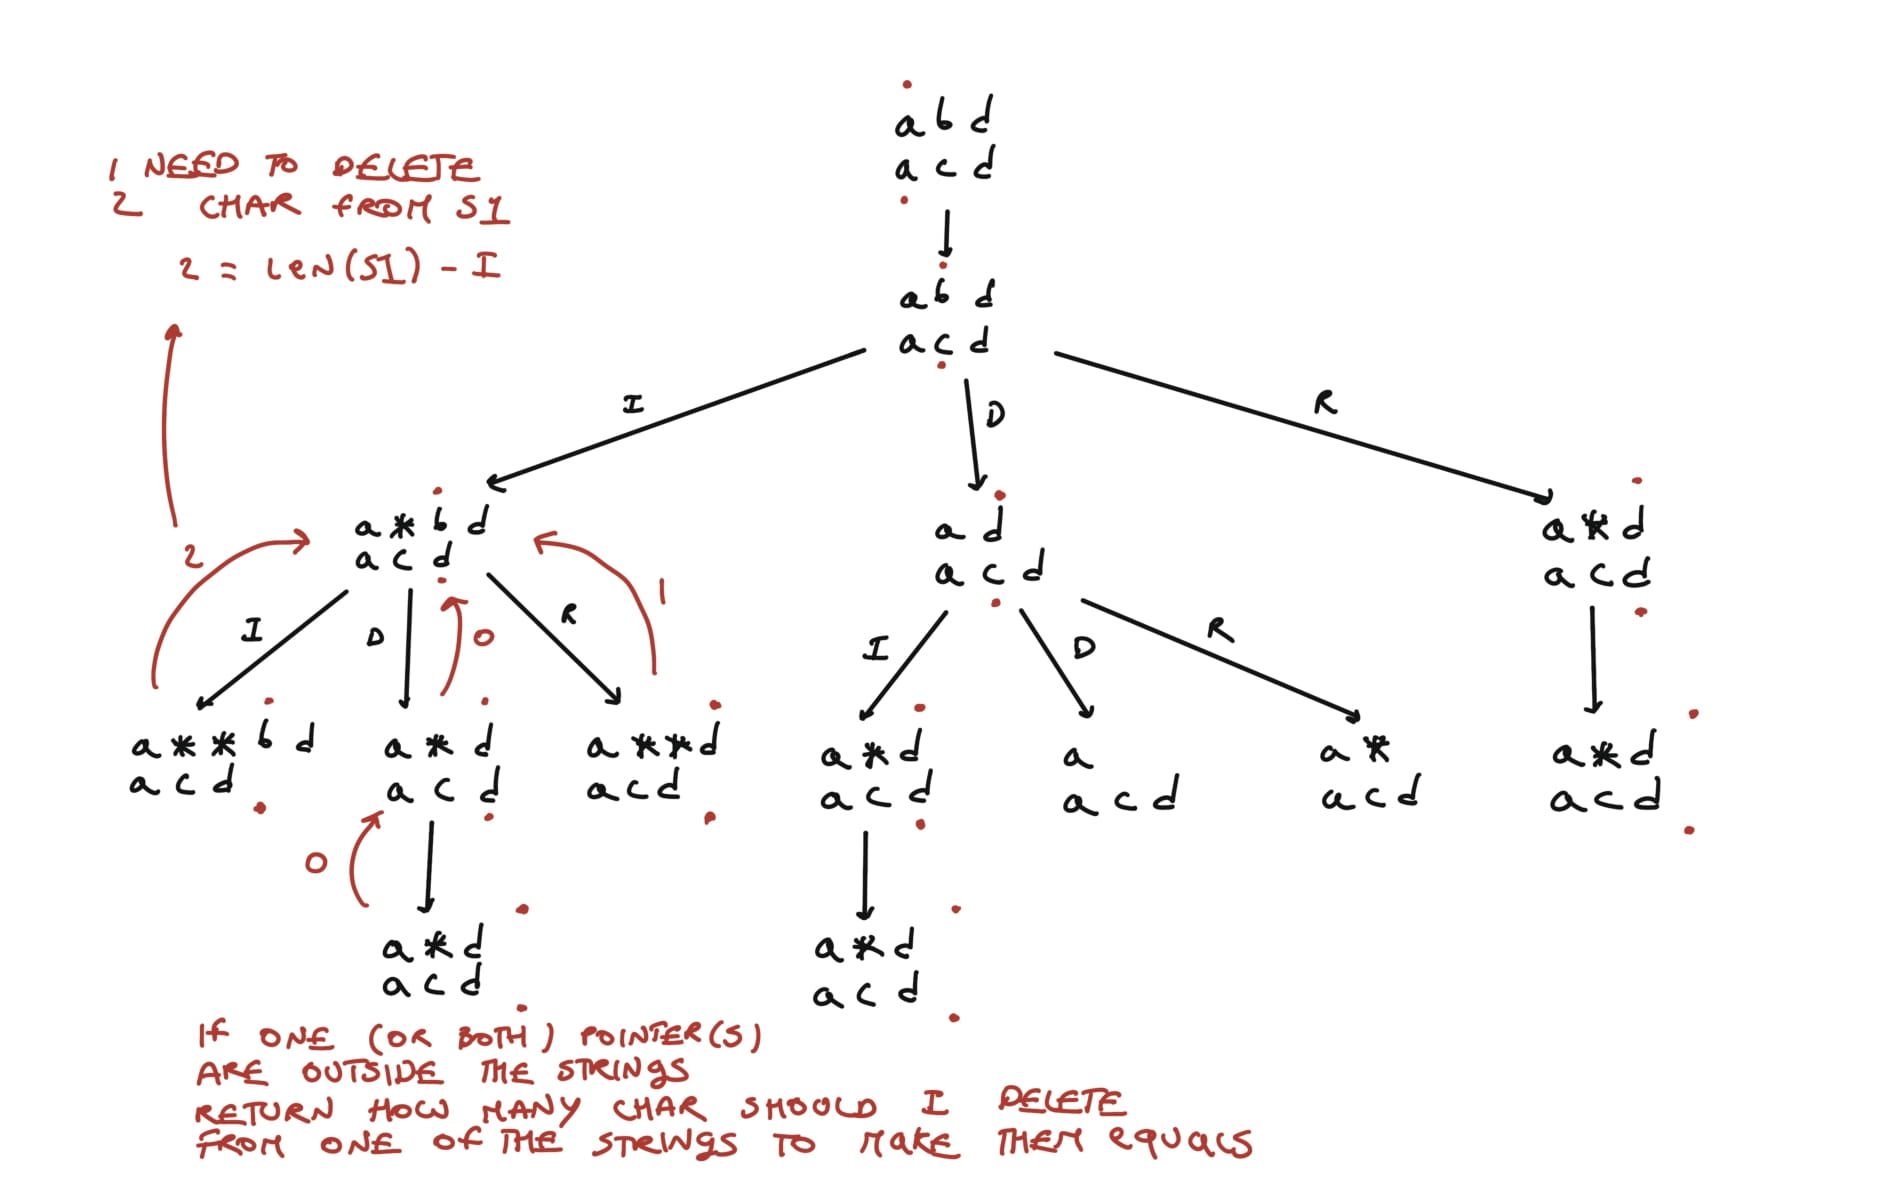 a b d
a c d
1 NEED TO DELETE
2 CHAR FROM S1
2 = LEN(S1) - I
a b d
a c d
I
D
R
a * b d
a c d
a d
a c d
a * d
a c d
2
0
1
I
D
R
I
D
R
a * * b d
a c d
a * d
a c d
a * * d
a c d
a * d
a c d
a
a c d
a *
a c d
a * d
a c d
0
a * d
a c d
a * d
a c d
If ONE (OR BOTH) POINTER(S)
ARE OUTSIDE THE STRINGS
RETURN HOW MANY CHAR SHOULD I DELETE
FROM ONE OF THE STRINGS TO MAKE THEM EQUALS